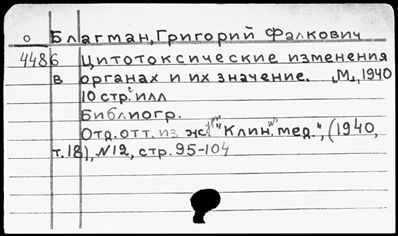 о Благман, Григорий Фалкович
4486 Цитотоксические изменения
в органах и их значение. "М", 1940
10 стр. илл
Библиогр.
Отд. отт. из ж. "Клин. мед.", (1940,
т. 18), N12, стр. 95-104